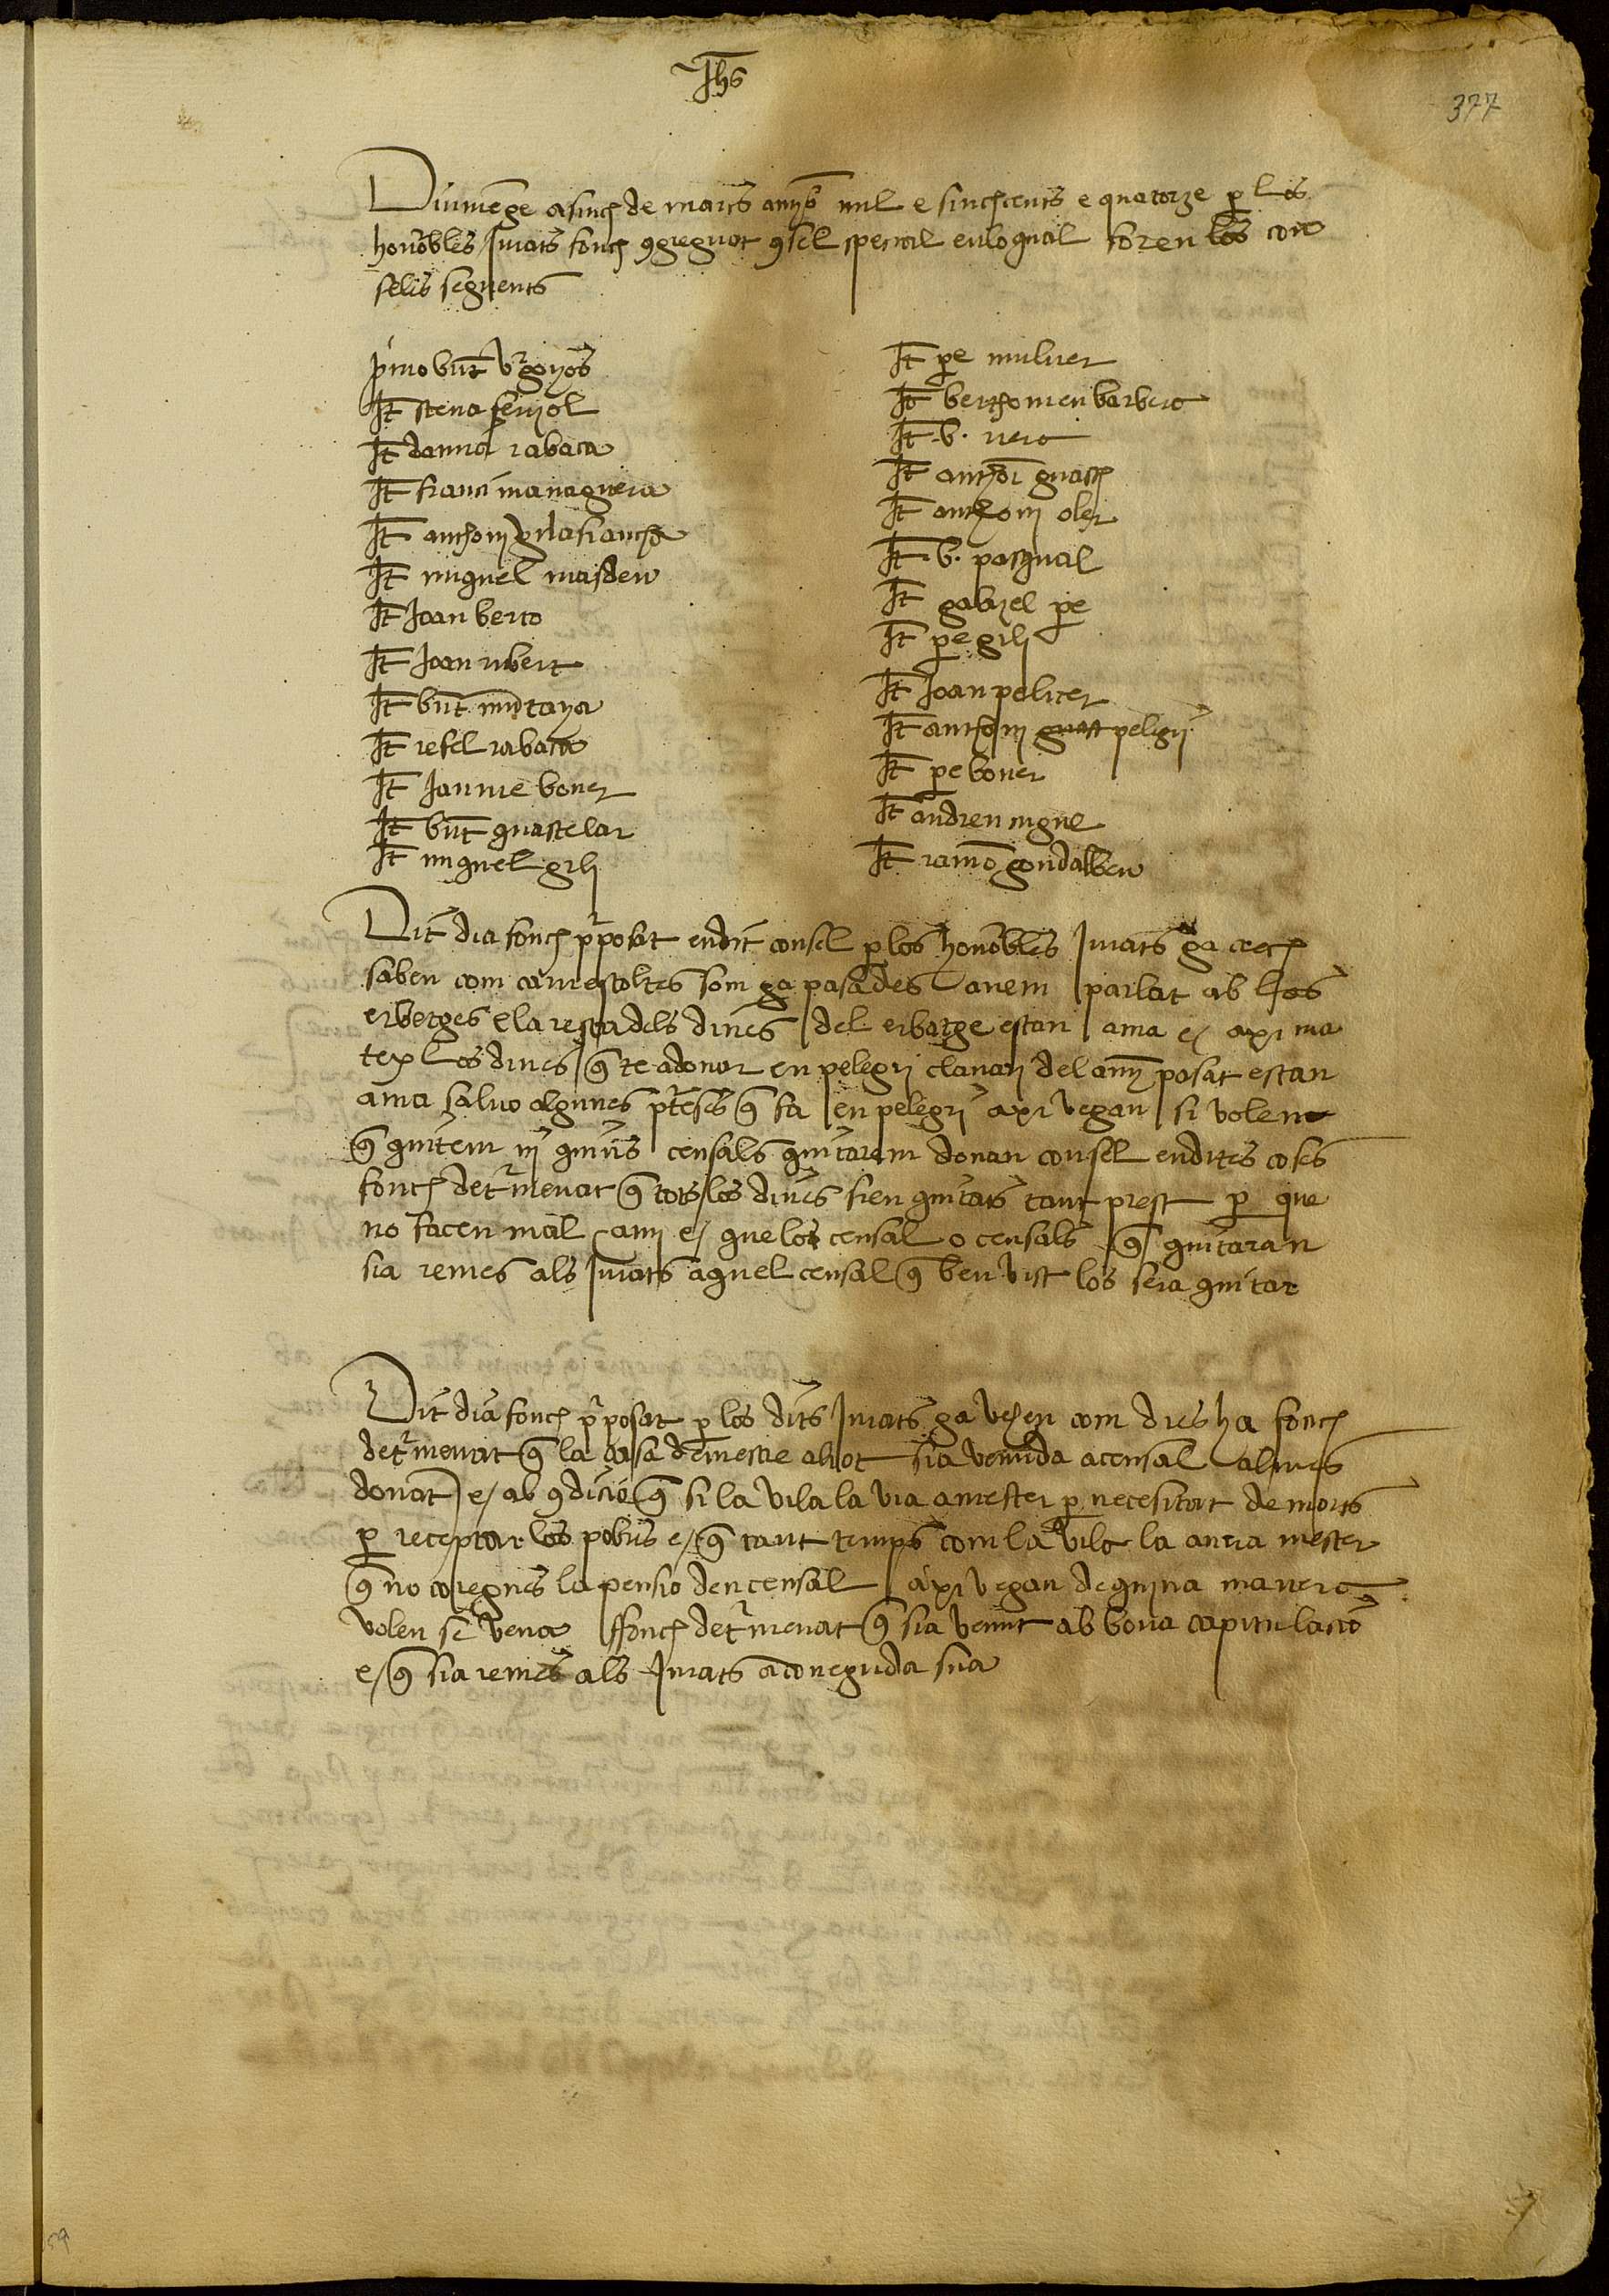 Jhs
377
Diumẽge a sinch de mars anys mil e sinchcents e quatorze p los
honorbles Jurats fonch 9gregat 9sel special en lo qual foren los con
sells seguents
p̃mo bñt v̉gonyos
It stena feriol
It damia rabaca
It franci managuera
It anthoni vilafrancha
It miquel masdeu
It Joan berto
It Joan ribert
It bñt mũtanya
It refel rabaca
It Jaume boner
It bñt guastelar
It miquel gili
It pe muluer
It berthomeu barbera
It b. riera
It anthoi guasch
It anthoni oler
It b. pasqual
It gabriel pe
It pe gili
It Joan pelicer
It anthoni guast peligri
It pe boner
It andreu
It ramõ gondalbeu
Dit dia fonch p̉posat en dit consel p los honorbles Jurats ga crech
saben com carnestoltes som ga pasades anem parlat ab los
erbatges e la resta dels dines del erbatge estan a ma e axi ma
tex los dines q̃ te a donar en pelegri clauari del any pasat estan
a ma saluo algunes pteses q̃ fa en pelegri axi vegan si volen
q̃ quitem ni quins censals quitarem donan consel en dites coses
fonch det̉menat q̃ tots los dines sien quitats tant prest p que
no facen mal any e que los censal o censals q̃ quitaran
sia remes als Jurats aquel censal q̃ ben vist los sera quitar
Dit dia fonch p̉posat p los dits Jurats ga vegen com dies ha fonch
det̉menat q̃ la casa de mestre aliot sia venuda a censal al mes
donãt e ab 9dicio q̃ si la vila la via a mester p necesitat de morts
p receptar los pobris e q̃ tant temps com la vila la auia mester
q̃ no coregues la pensio den censal axi vegan de quina manera
volen se vena ffonch det̉menat q̃ sia venut ab bona capitulacio
e q̃ sia remes als Jurats a coneguda sua